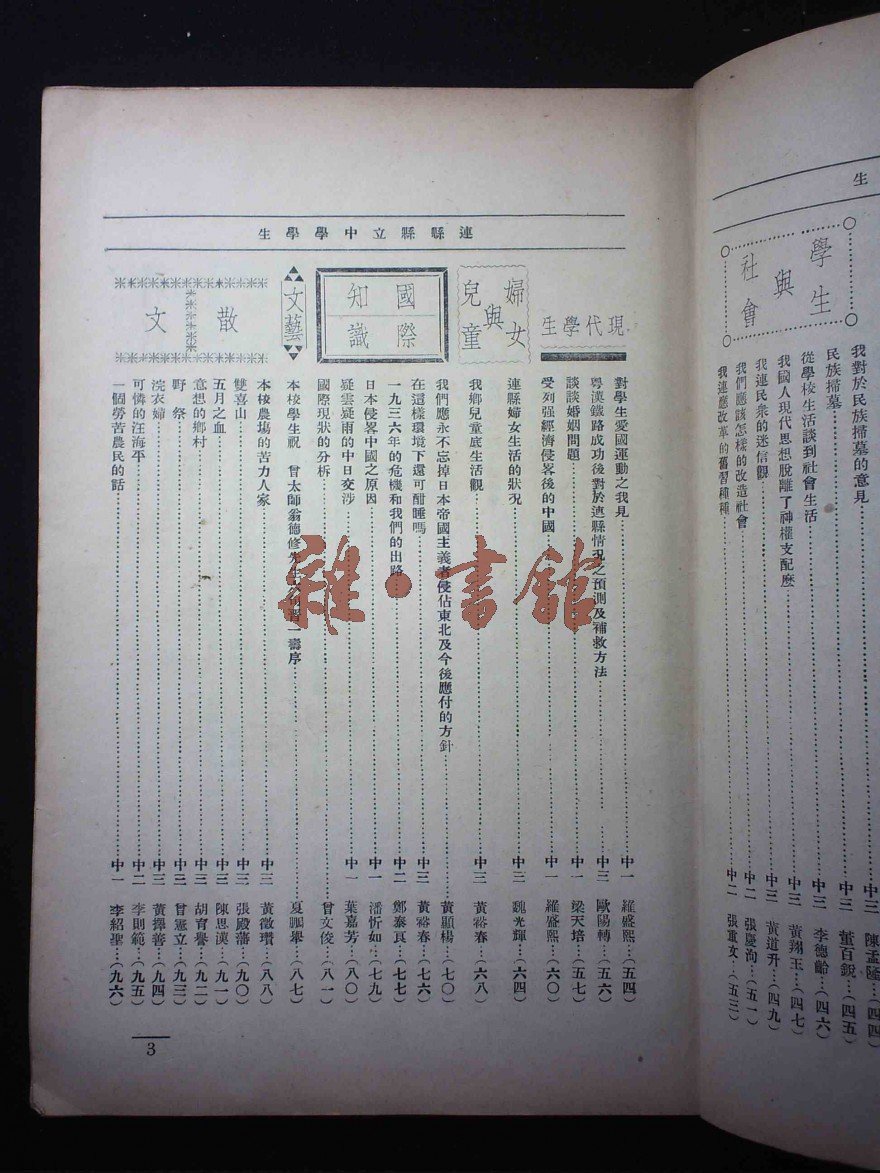 生
學與生
社會
我對於民族掃墓的意見……陳孟隆…(四四)
民族掃墓……中三 董百銳…(四五)
從學校生活談到社會生活……中三 李德齡…(四六)
我國人現代思想脫離了神權支配麽……中三 黃翔玉…(四七)
我連民衆的迷信觀……中三 黃道升…(四九)
我們應該怎樣的改造社會……中二 張慶洵…(五一)
我連應改革的舊習種種……中二 張重文…(五三)
連縣縣立中學學生
現代學生
對學生愛國運動之我見……中一 羅盛熙…(五四)
粵漢鐵路成功後對於連縣情況之預測及補救方法……中三 歐陽轉…(五六)
談談婚姻問題……中一 梁天培…(五七)
受列强經濟侵畧後的中國……中一 羅盛熙…(六〇)
婦女與兒童
連縣婦女生活的狀况……中三 魏光輝…(六四)
我鄉兒童底生活觀……中三 黃裕春…(六八)
國際知識
我們應永不忘掉日本帝國主義者侵佔東北及今後應付的方針……黃顯楊…(七〇)
在這樣環境下還可酣睡嗎……中三 黃裕春…(七六)
一九三六年的危機和我們的出路……中二 鄭泰良…(七七)
日本侵畧中國之原因……中一 潘忻如…(七九)
疑雲疑雨的中日交涉……中一 葉嘉芳…(八〇)
國際現狀的分析……曾文俊…(八一)
文藝
本校學生祝 曾太師翁德修先生 壽序……夏鵬舉…(八七)
散文
本校農場的苦力人家……中三 黃徵瓚…(八八)
雙喜山……中三 張殿藩…(九〇)
五月之血……中三 陳思漢…(九一)
意想的鄉村……中三 胡育譽…(九二)
野祭……中三 曾憲立…(九三)
浣衣婦……中三 黃擇善…(九四)
可憐的汪海平……中二 李則範…(九五)
一個勞苦農民的話……中一 李紹基…(九六)
3
雜·書館